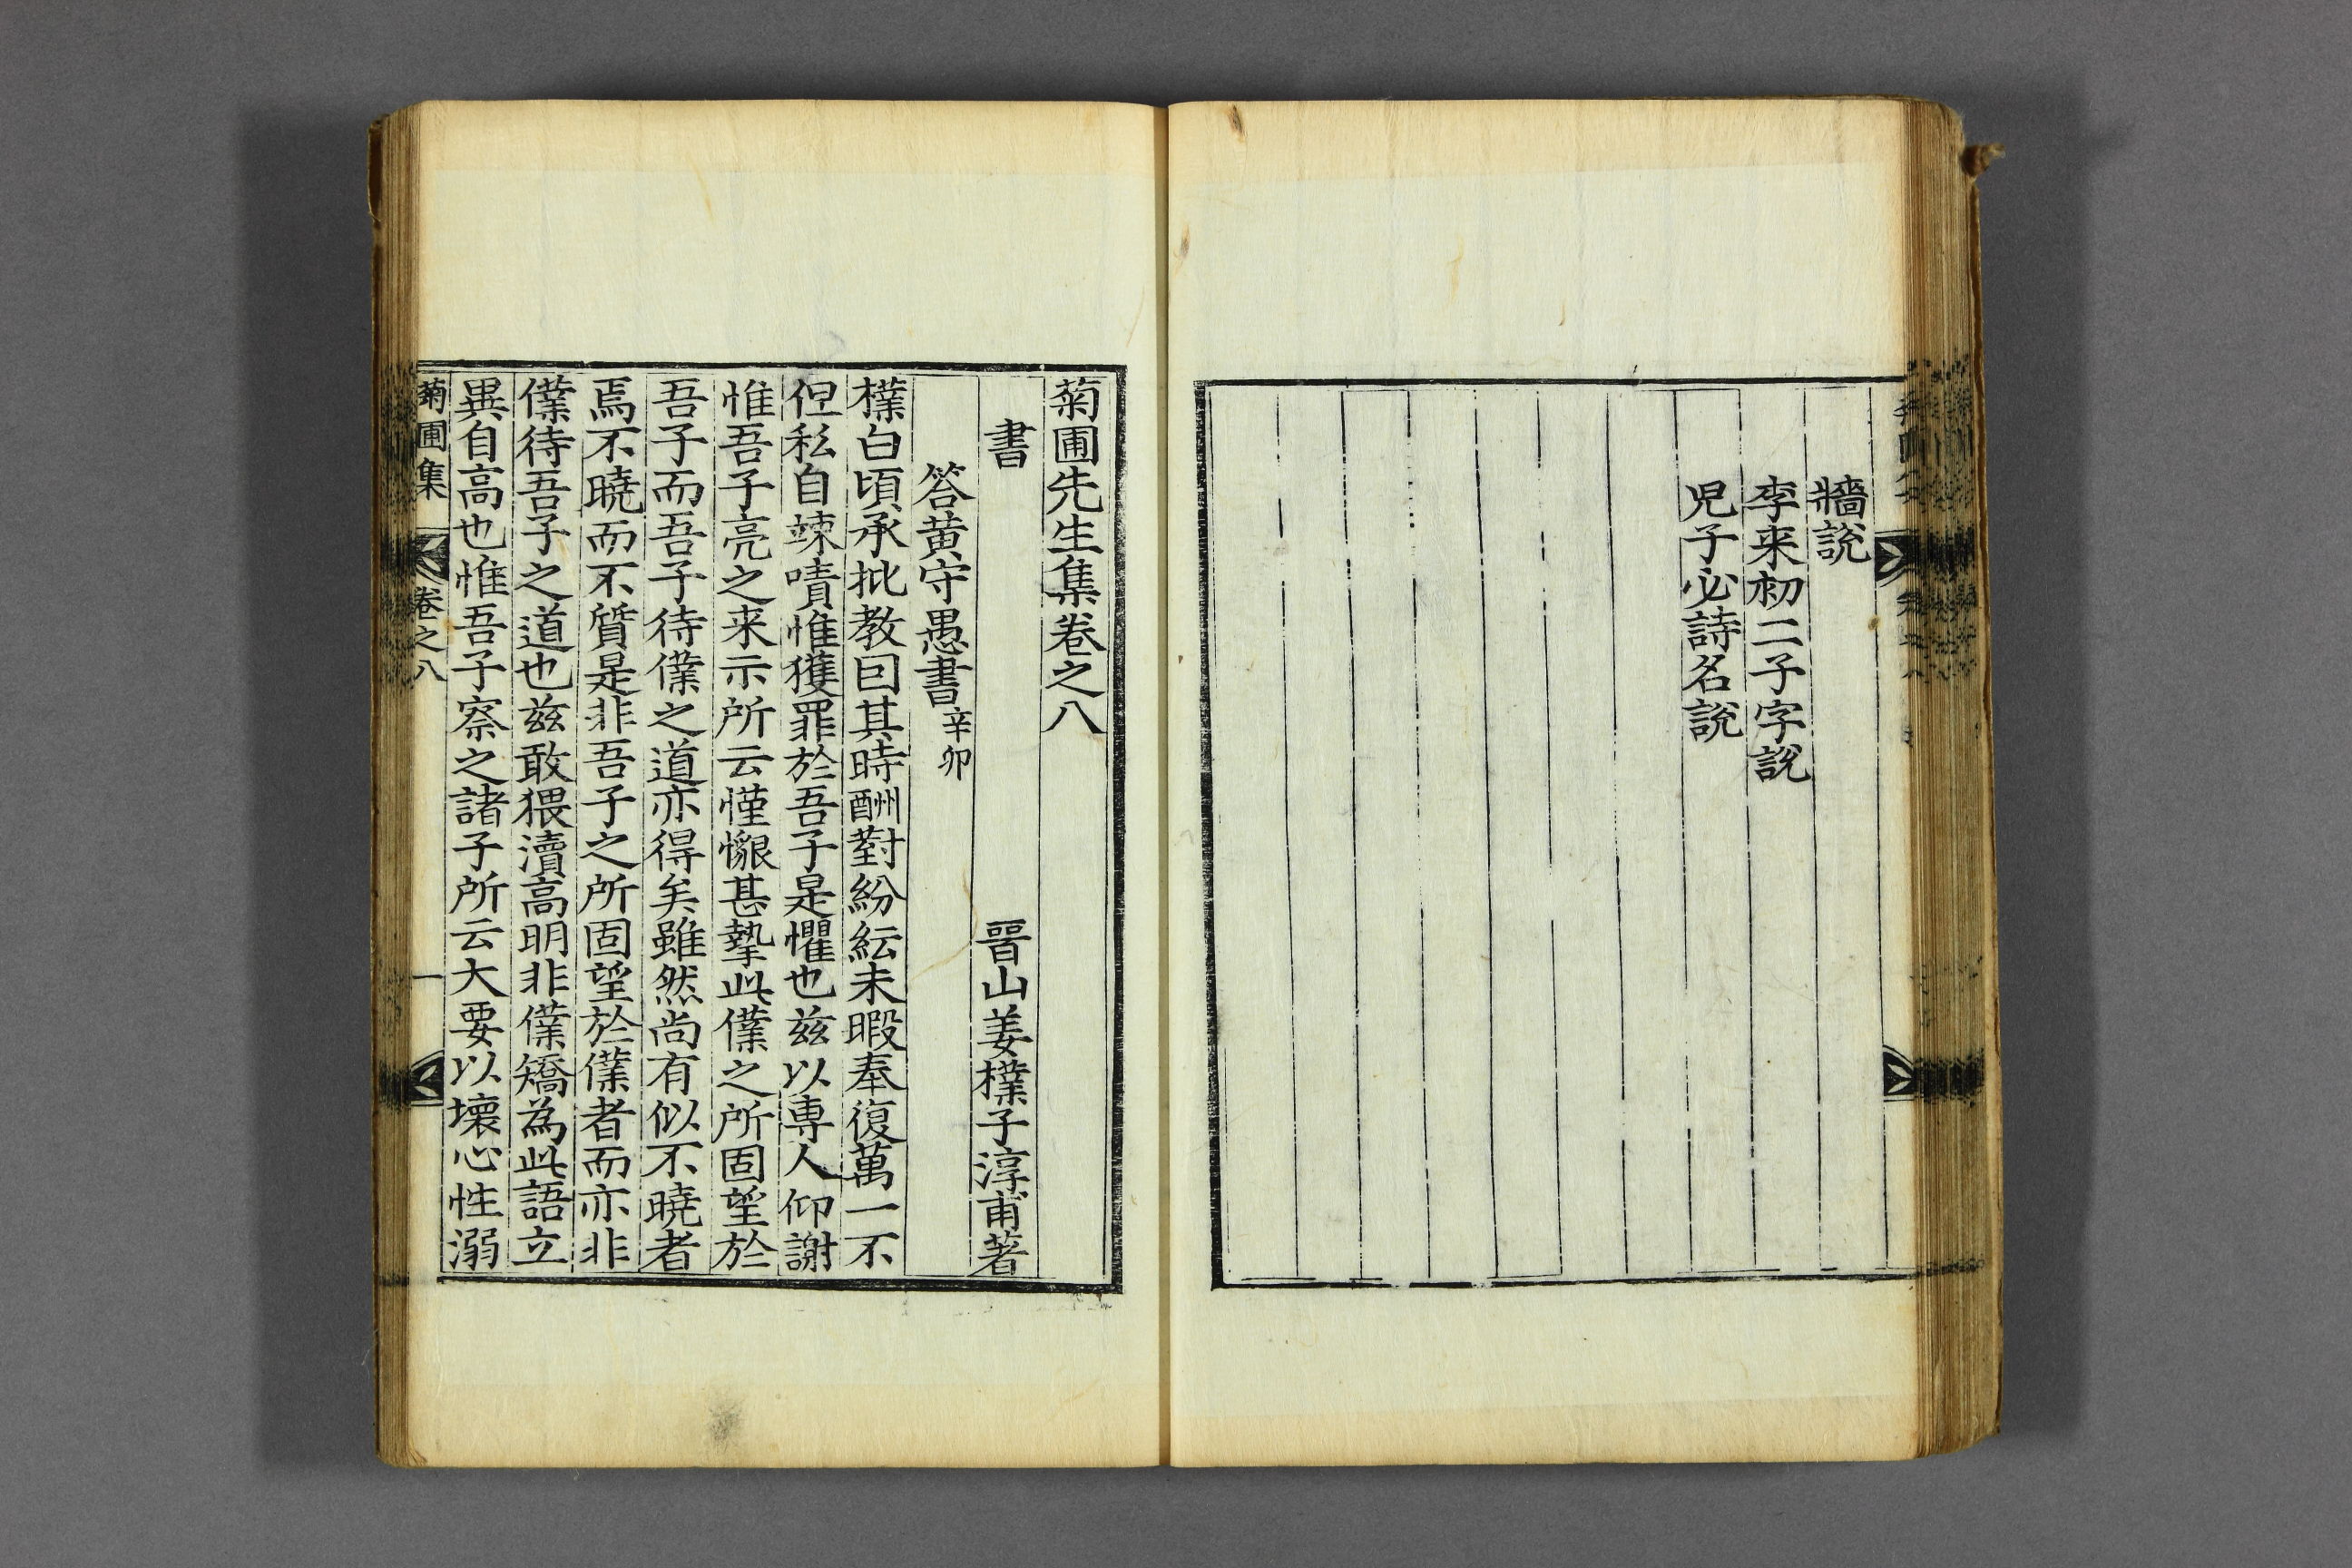 牆說
李来初二子字說
児子必詩名說
菊圃先生集卷之八
書
晉山姜樸子淳甫著
答黄守愚書辛卯
樸白頃承批教囙其時酬對紛紜未暇奉復萬一不
但私自竦嘖惟獲罪於吾子是懼也兹以専人仰謝
惟吾子亮之来示所云慬懇甚摯此僕之所固望於
吾子而吾子待僕之道亦得矣雖然尚有似不曉者
焉不曉而不質是非吾子之所固望於僕者而亦非
僕待吾子之道也兹敢猥瀆高明非僕矯為此語立
異自高也惟吾子察之諸子所云大要以壞心性溺
菊圃集 卷之八 一